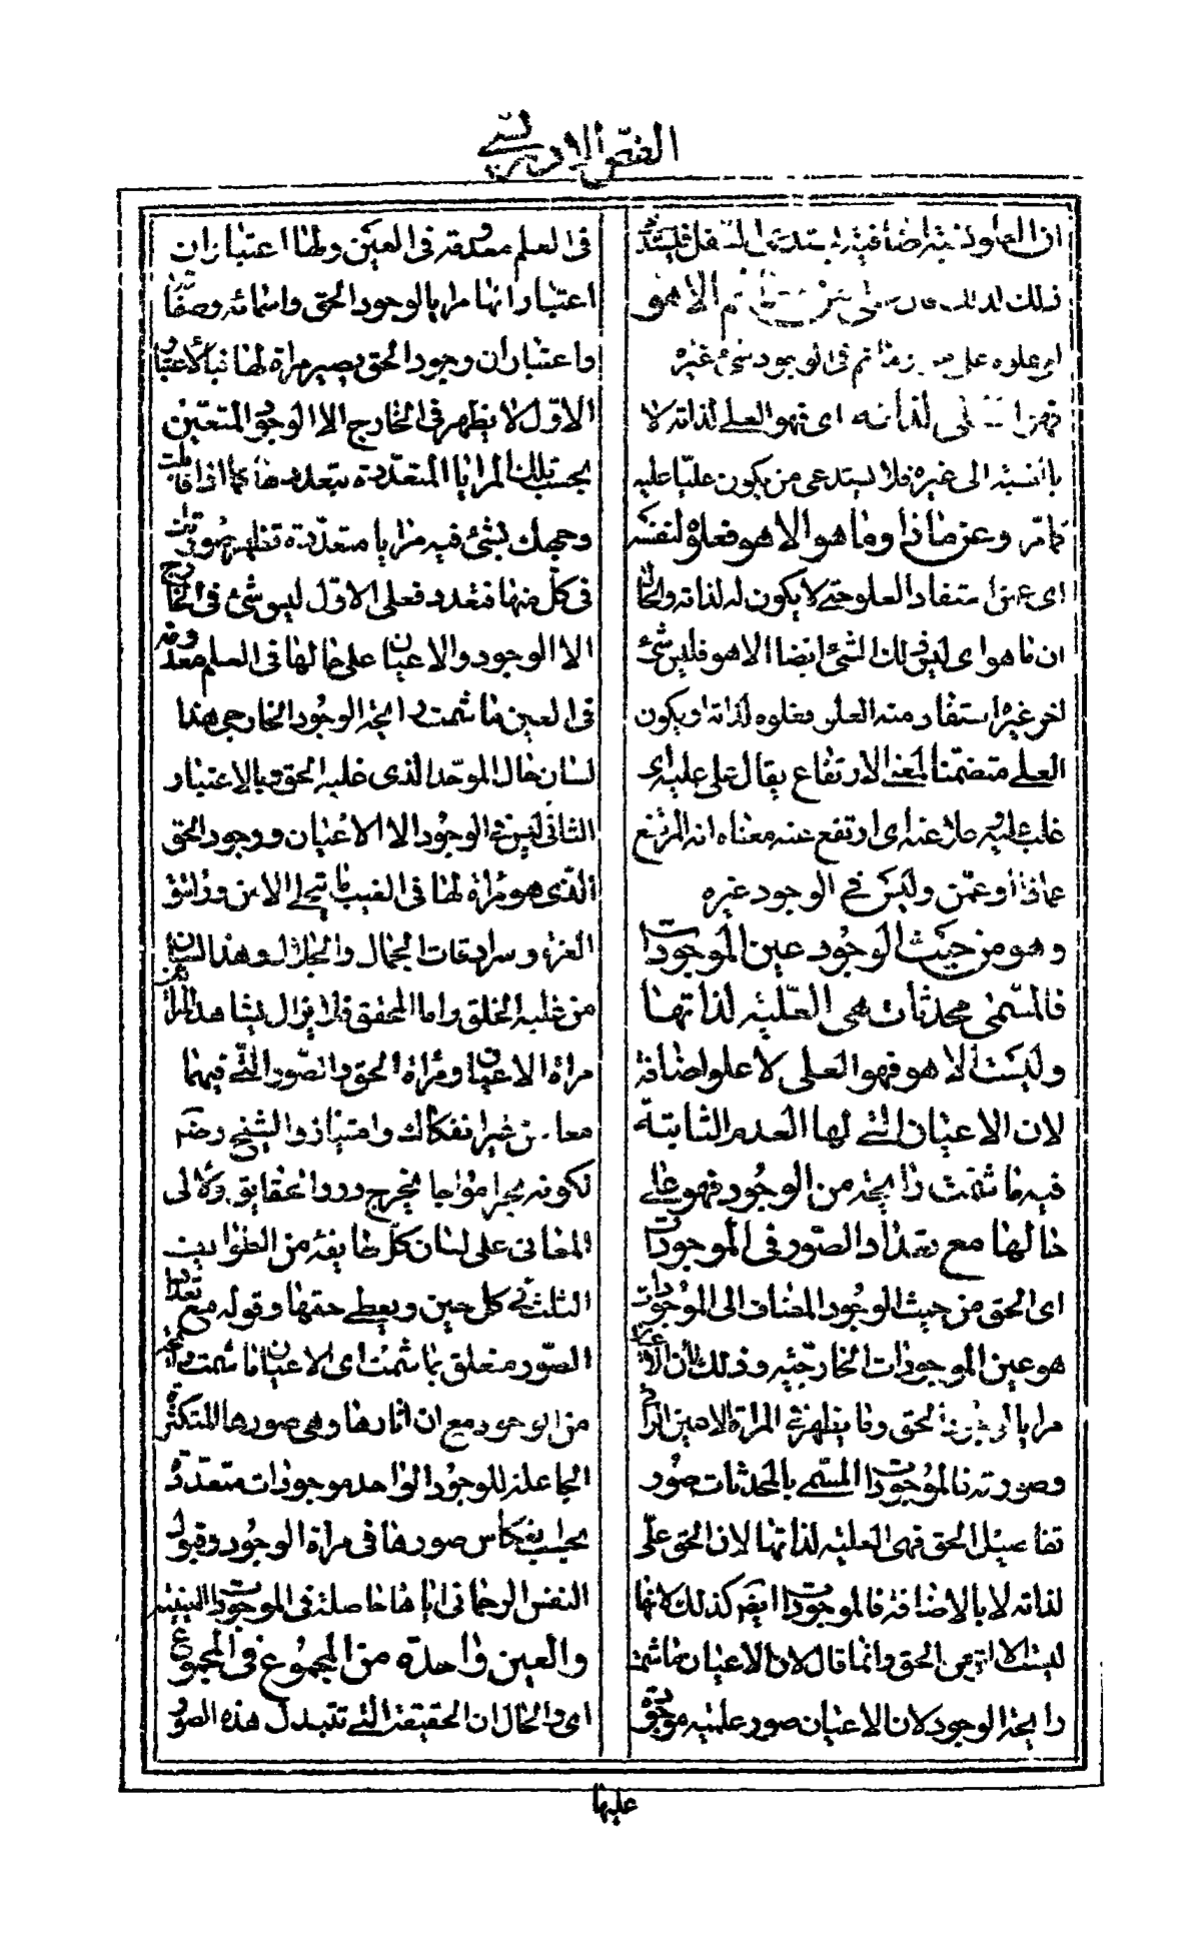 الفص الادريسي
ان العلو نسبة اضافية يستدعى السفل فليستدعى
ذلك لذلك قال على من وما ثم الا هو
او علوه على من وما ثم فى الوجود شئ غيره
فهو العلى لذاته اى فهو العلى لذاته لا
بالنسبة الى غيره فلا يستدعى من يكون عليا عليه
كما مر وعن ماذا وما هو الا هو فعلوه لنفسه
اى عمن استفاد العلو حتى لا يكون له لذاته والحال
ان ما هو اى ليس ذلك الشئ ايضا الا هو فليس شئ
اخر غيره استفاد منه العلو فعلوه لذاته او يكون
العلى متضمنا لمعنى الارتفاع يقال على عليه اى
غلب عليه علا عنه اى ارتفع عنه معناه انه المرتفع
عماذا او عمن وليس فى الوجود غيره
وهو من حيث الوجود عين الموجودات
فالمسمى محدثات هى العلية لذاتها
وليست الا هو فهو العلى لا علو اضافة
لان الاعيان التى لها العدم الثابتة
فيه ما شمت رايحة من الوجود فهو على
حالها مع تعداد الصور فى الموجودات
اى الحق من حيث الوجود المضاف الى الموجودات
هو عين الموجودات الخارجية وذلك لأن الاعيان
مرايا لوجود الحق وما يظهر فى المراة الا عين الرائى
وصورته فالموجودات المسمى بالمحدثات صور
تفاصيل الحق فهى العلية لذاتها لان الحق على
لذاته لا بالاضافة فالموجودات ايضم كذلك لانها
ليست الا عين الحق وانما قال لان الاعيان ما شمت
رايحة الوجود لان الاعيان صور علمية موجودة
فى العلم معدومة فى العين ولها اعتباران
اعتبار انها مرايا لوجود الحق واسمائه وصفاته
واعتبار ان وجود الحق يصير مراة لها فبالاعتبار
الاول لا يظهر فى الخارج الا الوجود المتعين
بحسب تلك المرايا المتعددة بتعددها كما اذا قابلت
وجهك بشئ فيه مرايا متعددة تظهر صورتك
فى كل منها فتعدد فعلى الاول ليس شئ فى الخارج
الا الوجود والاعيان على حالها فى العلم معدومة
فى العين ما شمت رايحة الوجود الخارجى هذا
لسان حال الموحد الذى غلبه الحق وبالاعتبار
الثانى ليس فى الوجود الا الاعيان ووجود الحق
الذى هو مراة لها فى الغيب ما يتجلى الا من وراء تتق
العزة وسرادقات الجمال والجلال وهذا لسان
من غلبه الخلق واما المحقق فلا يزال يشاهد المراتين
مراة الاعيان ومراة الحق والصور التى فيهما
معا من غير انفكاك وامتياز والشيخ رضه
لكونه بحرا مواجا يخرج درر الحقايق ولآلى
المعانى على لسان كل طايفة من الطوايف
الثلث فى كل حين ويعطى حقها وقوله مع تعداد
الصور متعلق بما شمت اى الاعيان ما شمت رايحة
من الوجود مع ان اثارها وهى صورها المتكثرة
الجاعلة للوجود الواحد موجودات متعددة
بحسب انعكاس صورها فى مراة الوجود وقبول
النفس الرحمانى اياها حاصلة فى الموجودات العينية
والعين واحدة من المجموع فى المجموع
اى والحال ان الحقيقة التى تتبدل هذه الصور
عليها